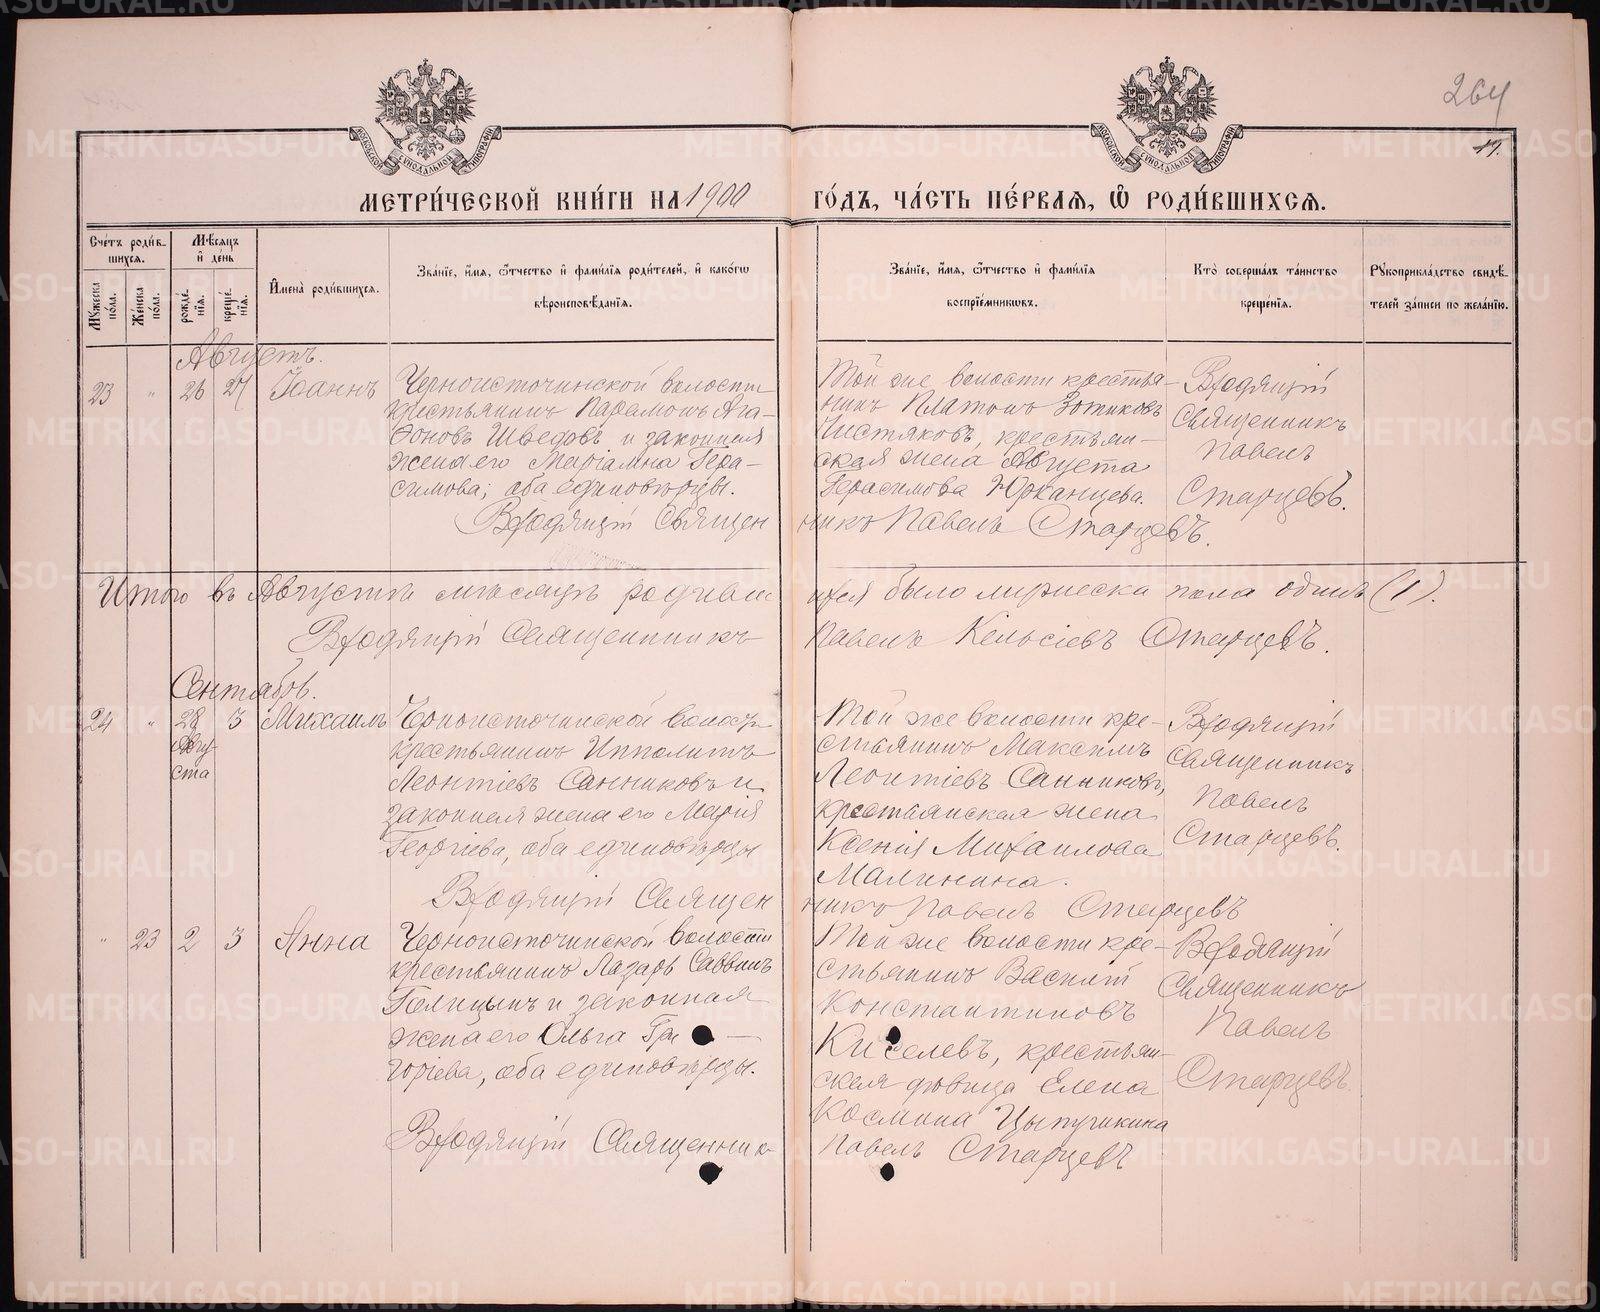 264
17.
МЕТРИ́ЧЕСКОЙ КНИ́ГИ НА 1900 ГО́ДЪ, ЧА́СТЬ ПЕ́РВАѦ, Ѽ РОДИ́ВШИХСѦ.
Сче́тъ роди́в-
шихся.
Мѣ́сяцъ
и҆ де́нь
Мꙋжеска
по́ла.
Же́нска
по́ла.
рожде́-
нїя.
креще́-
нїя.
И҆мена̀ роди́вшихся.
Зва́нїе, и҆́мя, ѻ҆́тчество и҆ фами́лїя роди́телей, и҆ како́гѡ
вѣроисповѣ́данїя.
Зва́нїе, и҆́мя, ѻ҆́тчество и҆ фами́лїя
воспрїе́мникѡвъ.
Кто̀ соверша́лъ та́инство
креще́нїя.
Рꙋкоприкла́дство свидѣ́-
телей за́писи по жела́нїю.
Августъ.
23 " 26 27 Іоаннъ
Черноисточинской волости
крестьянинъ Парамонъ Ага-
ѳоновъ Шведовъ и законная
жена его Маріамна Гера-
симова; оба единовѣрцы.
Той же волости крестья-
нинъ Платонъ Зотиковъ
Чистяковъ, крестьян-
ская жена Августа
Герасимова Юрканцева.
Входящій
Священникъ
Павелъ
Старцевъ.
Входящій Священникъ Павелъ Старцевъ.
Итого въ Августѣ мѣсяцѣ родившихся было мужеска пола одинъ (1).
Входящій Священникъ Павелъ Кельсіевъ Старцевъ.
Сентябрь.
24 " 28 3 Михаилъ
Авгу-
ста
Черноисточинской волости
крестьянинъ Ипполитъ
Леонтіевъ Санниковъ и
законная жена его Марія
Георгіева, оба единовѣрцы
Той же волости кре-
стьянинъ Максимъ
Леонтіевъ Санниковъ,
крестьянская жена
Ксенія Михаилова
Малинина.
Входящій
Священникъ
Павелъ
Старцевъ.
Входящій Священникъ Павелъ Старцевъ
" 23 2 3 Анна
Черноисточинской волости
крестьянинъ Лазарь Саввинъ
Голицынъ и законная
жена его Ольга Гри-
горіева, оба единовѣрцы.
Той же волости кре-
стьянинъ Василій
Константиновъ
Киселевъ, крестьян-
ская дѣвица Елена
Космина Цыпушкина
Входящій
Священникъ
Павелъ
Старцевъ.
Входящій Священникъ Павелъ Старцевъ
METRIKI.GASO-URAL.RU